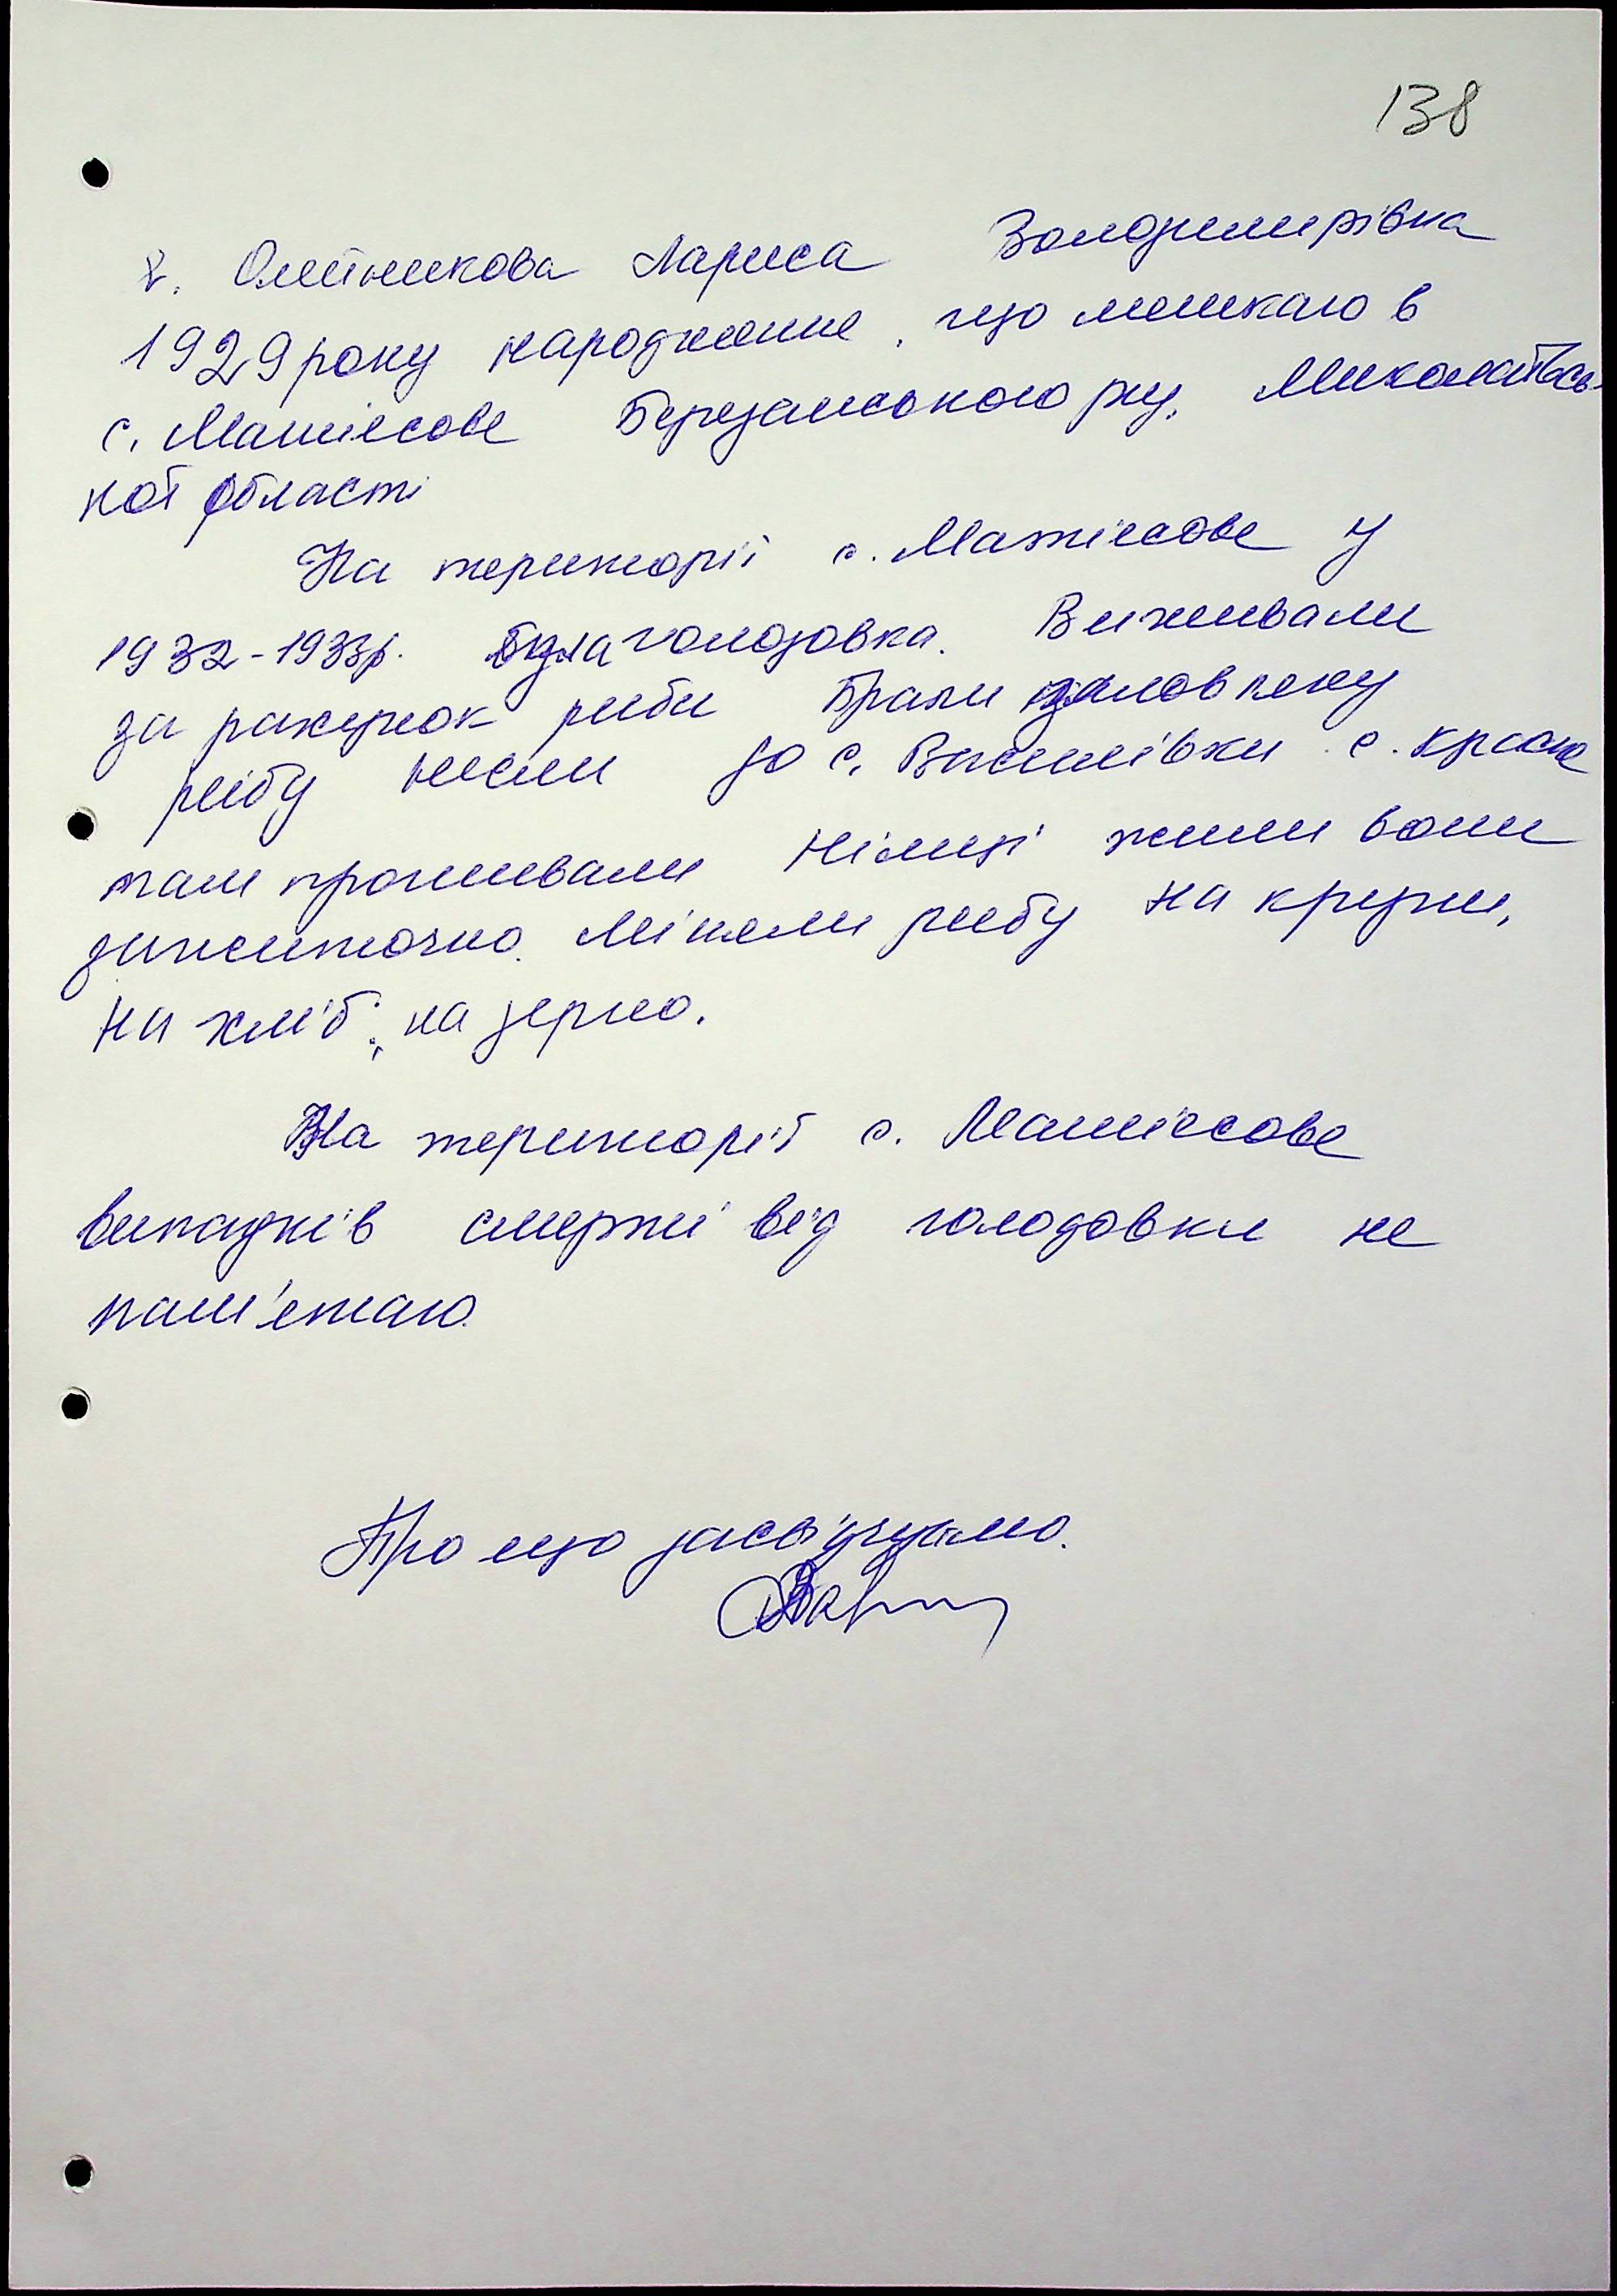 138
Я. Олейникова Лариса Володимирівна
1929 року народження, що мешкаю в
с. Матіясове Березанського р-ну, Миколаївсь-
кої області
На території с. Матіясове у
1932-1933р. була голодовка. Виживали
за рахунок риби брали
рибу несли до с. Василівки с. Красне
там проживали німці жили вони
зажиточно. Міняли рибу на крупи,
на хліб, на зерно.
На території с. Матіясове
випадків смерті від голодовки не
пам'ятаю.
Про що засвідчуємо.